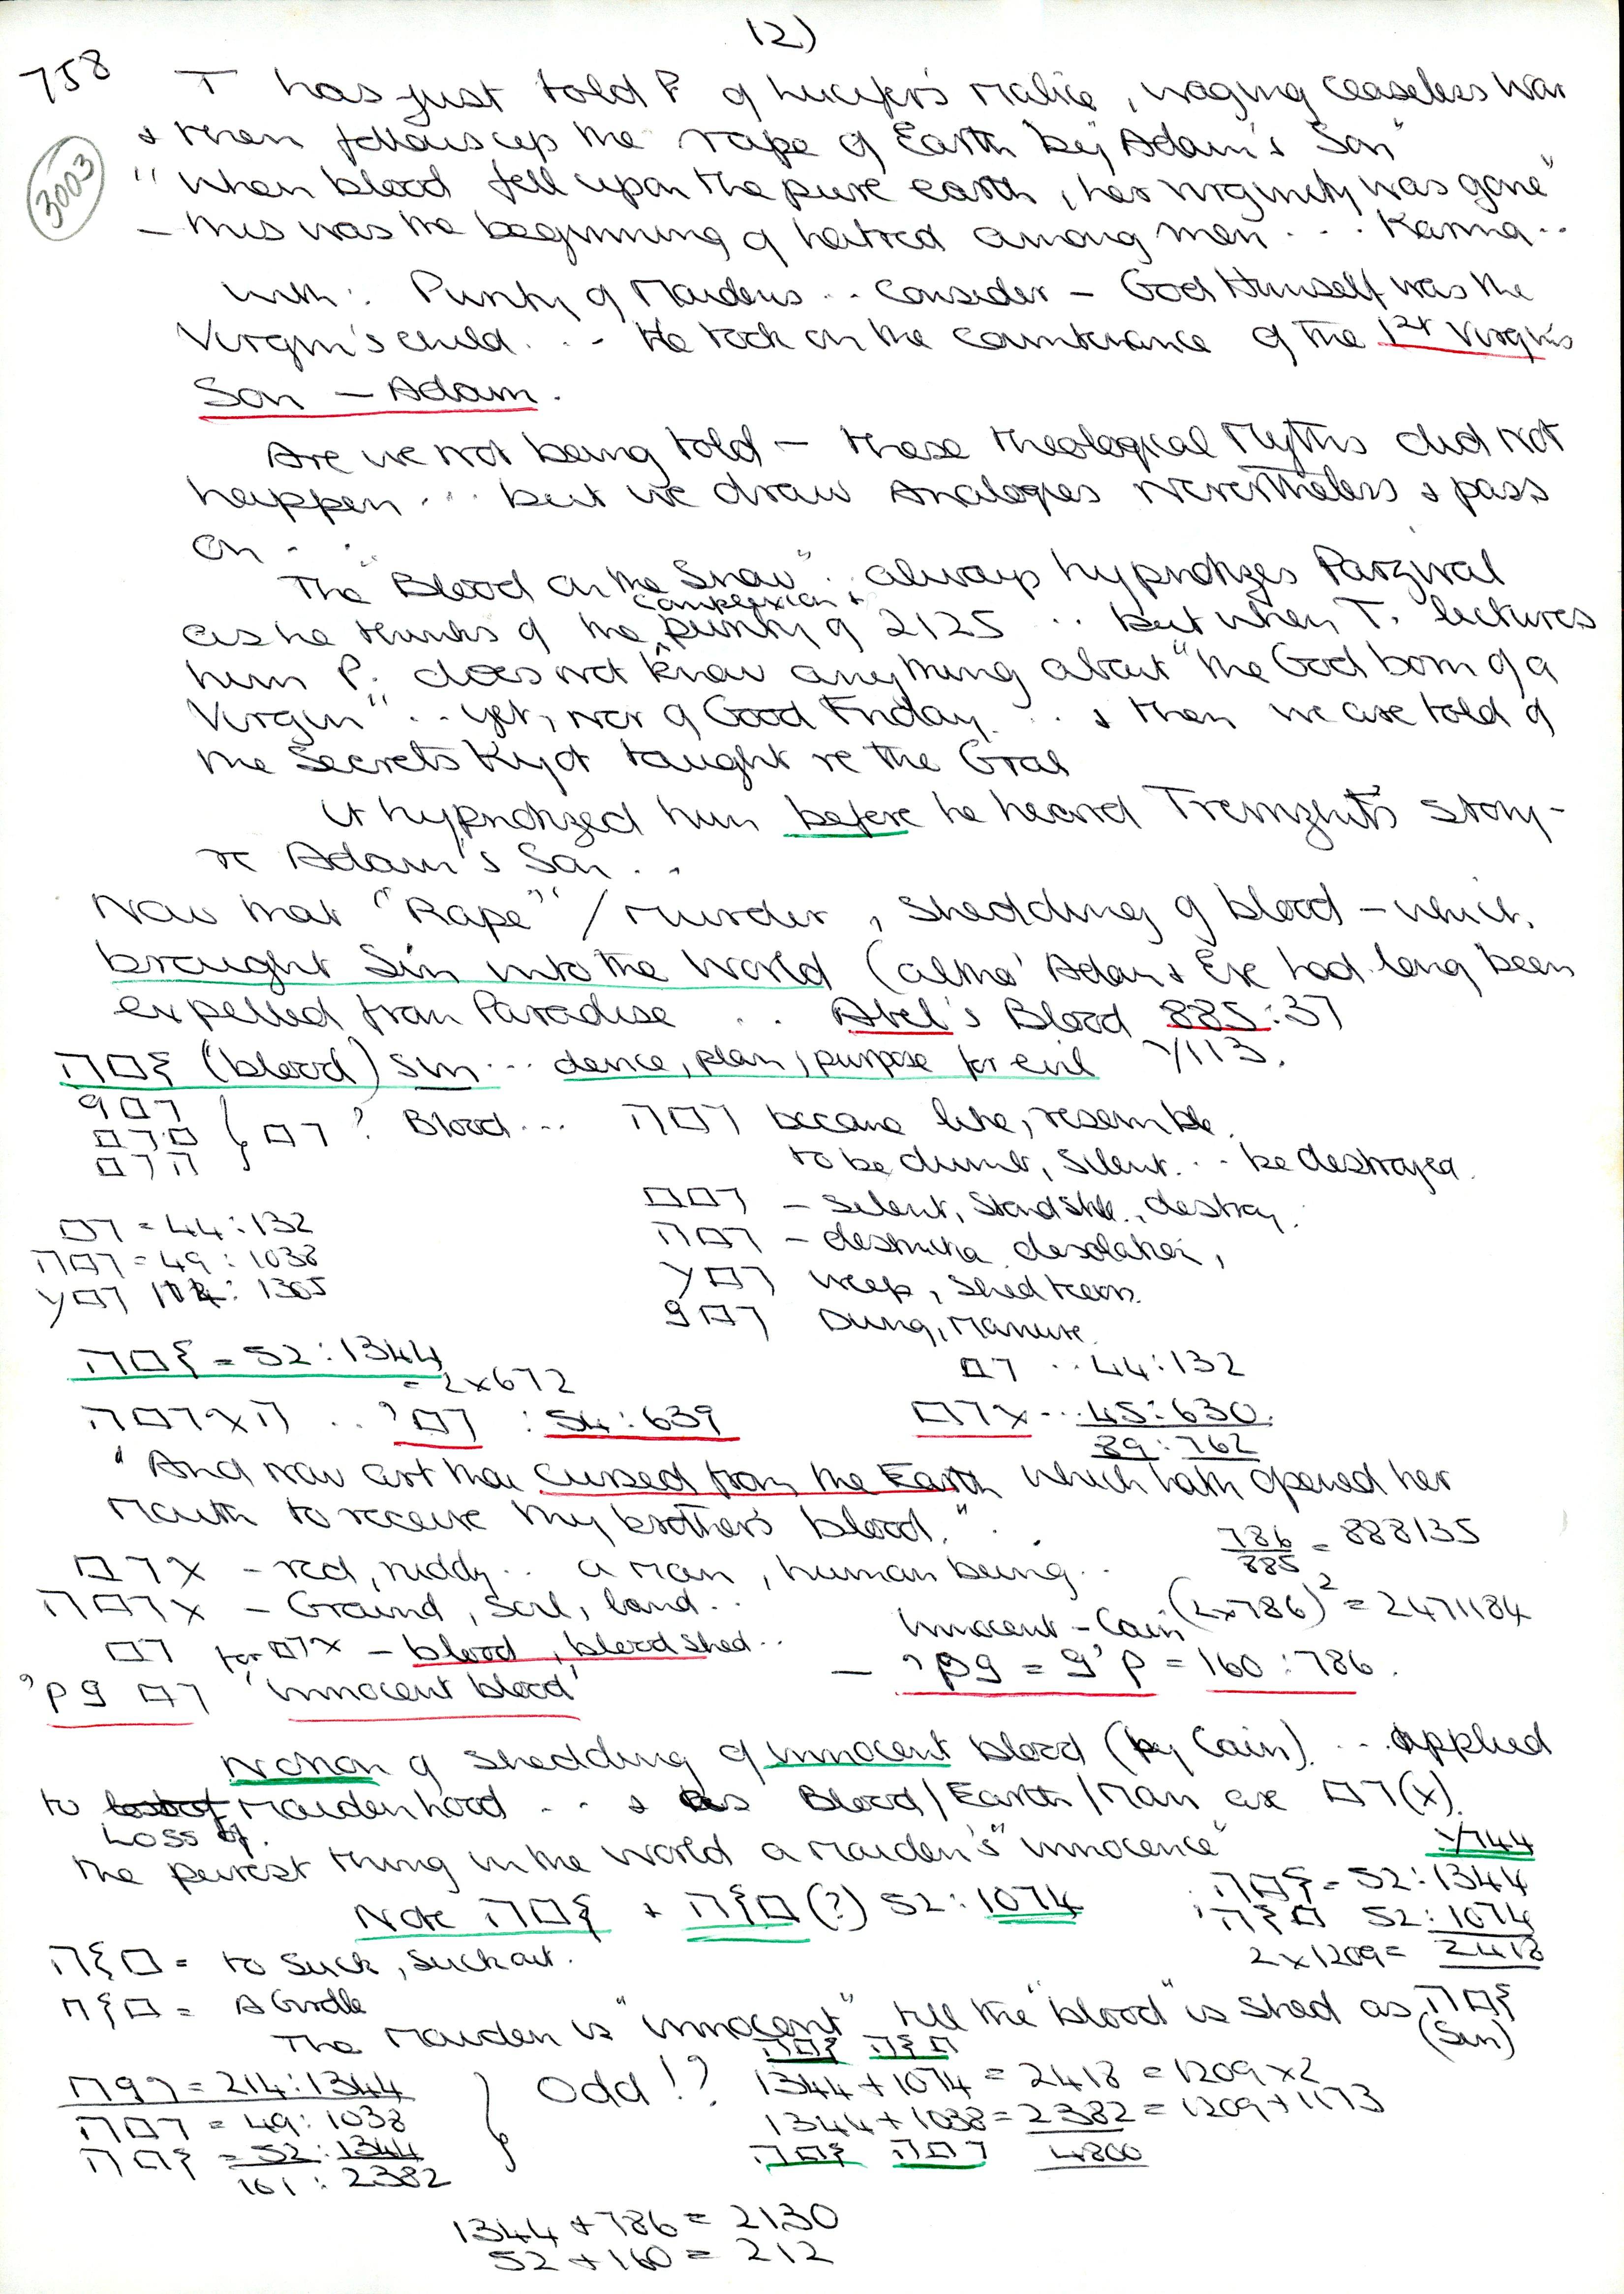 12)
758
T has just told P of Lucifer's Malice, waging ceaseless War
& then follows up the rape of Earth by "Adam's Son"
3003
"When blood fell upon the pure earth, her virginity was gone"
– this was the beginning of hatred among men . . . Karma ..
with: Purity of Maidens .. Consider – God Himself was the
Virgin's child. . . – He took on the countenance of the 1st Virgin's
Son – Adam.
Are we not being told – these Theological Myths did not
happen ... but we draw Analogies nevertheless & pass
on . .
The "Blood on the Snow" .. always hypnotizes Parzival
complexion &
as he thinks of the purity of 2125 .. but when T. lectures
him P. does not know anything about "the God born of a
Virgin" .. yet, nor of Good Friday ... & then we are told of
the Secrets Kyot taught re the Gral
It hypnotized him before he heard Trevrizent's story –
re Adam's Son . .
Now that "Rape" / Murder, shedding of blood – which
brought Sin into the World (altho' Adam & Eve had long been
expelled from Paradise .. Abel's Blood 885:37
זמה (blood) sin ... device, plan, purpose for evil √113.
דם ? Blood ... דמה became like, resemble.
to be dumb, silent. .. be destroyed.
דמם – Silent, Stand Still, destroy.
דמה – destruction, desolation,
דמע weep, shed tears.
Dung, Manure.
דם = 44:132
דמה = 49:1038
: 1365
זמה = 52:1344
= 2x672
דם .. 44:132
: 54:639
אדם .. 45:630.
89:762
"And now art thou cursed from the Earth which hath opened her
Mouth to receive thy brother's blood."
786/885 = 888135
אדם – red, ruddy .. a Man, human being ..
אדמה – Ground, Soil, land ..
(2x786)² = 2471184
דם for אדם – blood, blood shed ..
Innocent – Cain
דם נקי 'innocent blood'
– נקי = קין = 160:786.
Notion of shedding of innocent blood (by Cain) ... applied
to Maidenhood ... & as Blood/Earth/Man are דם(א).
Loss of.
the purest thing in the world a Maiden's "innocence"
√744
Note זמה + מזה (?) 52:1074
זמה = 52:1344
מזה 52:1074
2x1209 = 2418
מזה = to Suck, Suck out.
מזה = A Girdle
The Maiden is "innocent" till the "blood" is shed as זמה
(Sin)
זמה מזה
= 214:1344
דמה = 49:1038
זמה = 52:1344
101:2382
Odd!?
1344 + 1074 = 2418 = 1209 x 2
1344 + 1038 = 2382 = 1209 + 1173
זמה דמה 4800
1344 + 786 = 2130
52 + 160 = 212